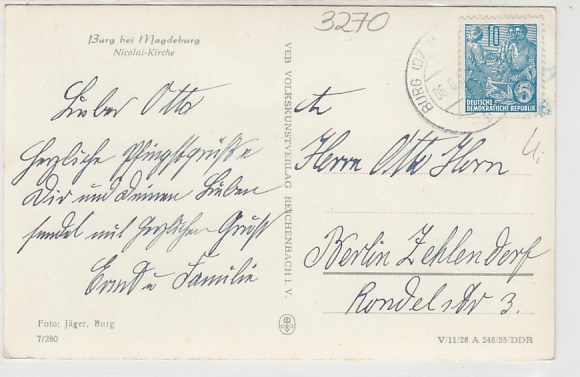 Burg bei Magdeburg
Nicolai-Kirche
3270
10
DEUTSCHE
DEMOKRATISCHE REPUBLIK
5
BURG (BZ.
06.6.
Lieber Otto
Herzliche Pfingstgrüße
Dir und Deinen Lieben
sendet mit herzlichen Gruß
Ernst u Familie
VEB VOLKSKUNSTVERLAG REICHENBACH i. V.
Herrn Otto Horn
Berlin Zehlendorf
Rondelstr 3.
Foto: Jäger, Burg
7/280
V/11/28 A 246/55/DDR